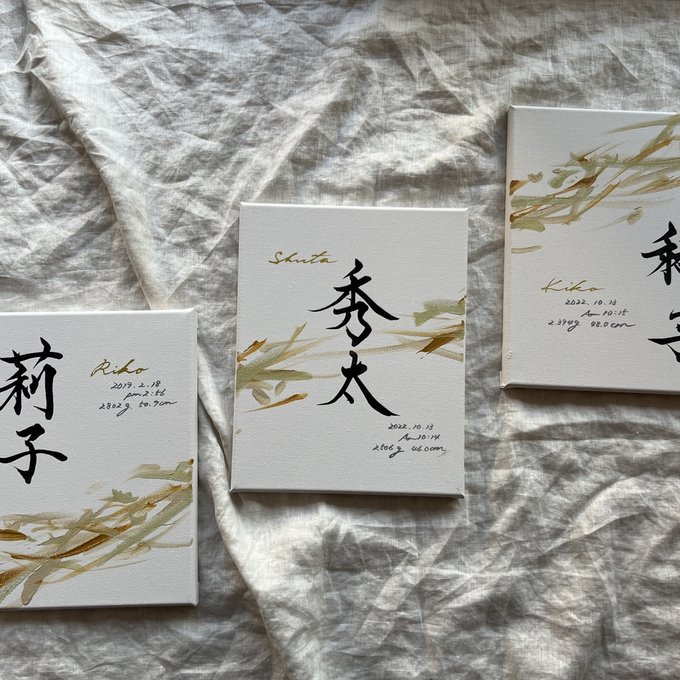 莉子
Riko
2019.2.18
pm2:56
2802g 50.7cm
Shuta
秀太
2022.10.13
Am10:14
2506g 46.0cm
Kiko
2022.10.13
Am10:15
2.394g 48.0cm